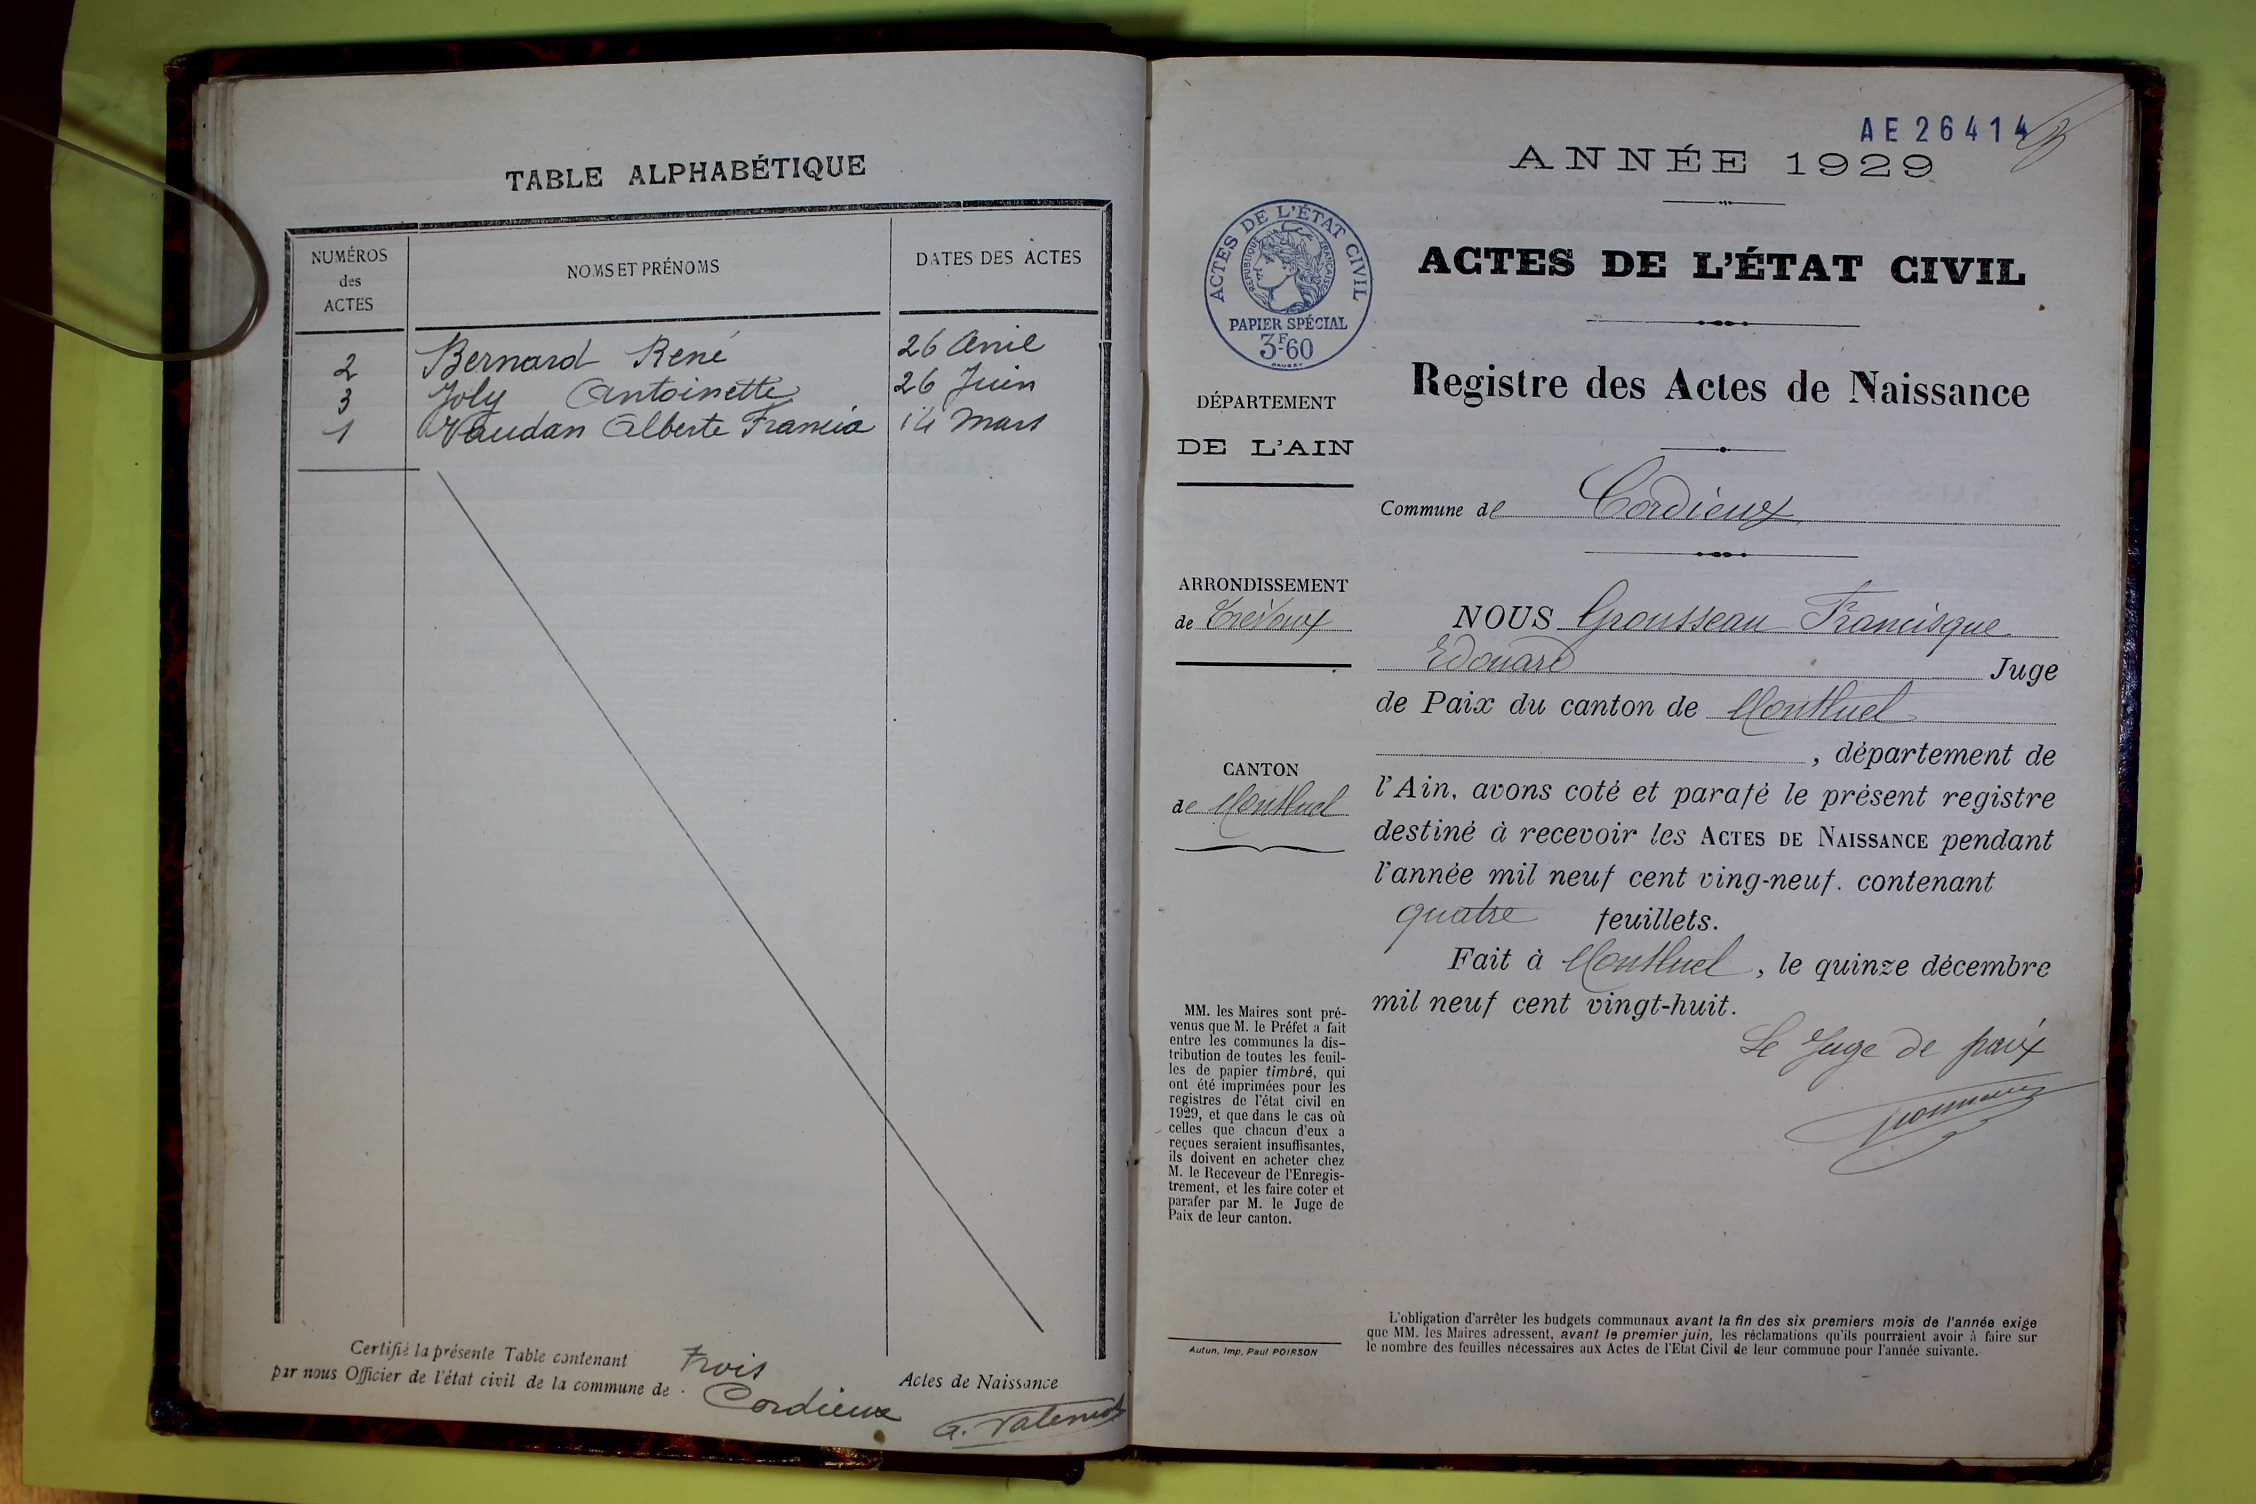 TABLE ALPHABÉTIQUE
NUMÉROS
des
ACTES
NOMS ET PRÉNOMS
DATES DES ACTES
2 Bernard René 26 Avril
3 Joly Antoinette 26 Juin
1 Vaudan Alberte Francia 14 Mars
Certifié la présente Table contenant trois Actes de Naissance
par nous Officier de l'état civil de la commune de Cordieux
AE 26414
ANNÉE 1929
ACTES DE L'ÉTAT CIVIL
RÉPUBLIQUE FRANÇAISE
PAPIER SPÉCIAL
3F60
DÉPARTEMENT
DE L'AIN
ARRONDISSEMENT
de Trévoux
CANTON
de Montluel
MM. les Maires sont pré-
venus que M. le Préfet a fait
entre les communes la dis-
tribution de toutes les feuil-
les de papier timbré, qui
ont été imprimées pour les
registres de l'état civil en
1929, et que dans le cas où
celles que chacun d'eux a
reçues seraient insuffisantes,
ils doivent en acheter chez
M. le Receveur de l'Enregis-
trement, et les faire coter et
parafer par M. le Juge de
Paix de leur canton.
Autun, Imp. Paul POIRSON
ACTES DE L'ÉTAT CIVIL
Registre des Actes de Naissance
Commune de Cordieux
NOUS Grousseau Francisque
Edouard Juge
de Paix du canton de Montluel
, département de
l'Ain, avons coté et parafé le présent registre
destiné à recevoir les ACTES DE NAISSANCE pendant
l'année mil neuf cent ving-neuf. contenant
quatre feuillets.
Fait à Montluel, le quinze décembre
mil neuf cent vingt-huit.
Le Juge de paix
L'obligation d'arrêter les budgets communaux avant la fin des six premiers mois de l'année exige
que MM. les Maires adressent, avant le premier juin, les réclamations qu'ils pourraient avoir à faire sur
le nombre des feuilles nécessaires aux Actes de l'Etat Civil de leur commune pour l'année suivante.